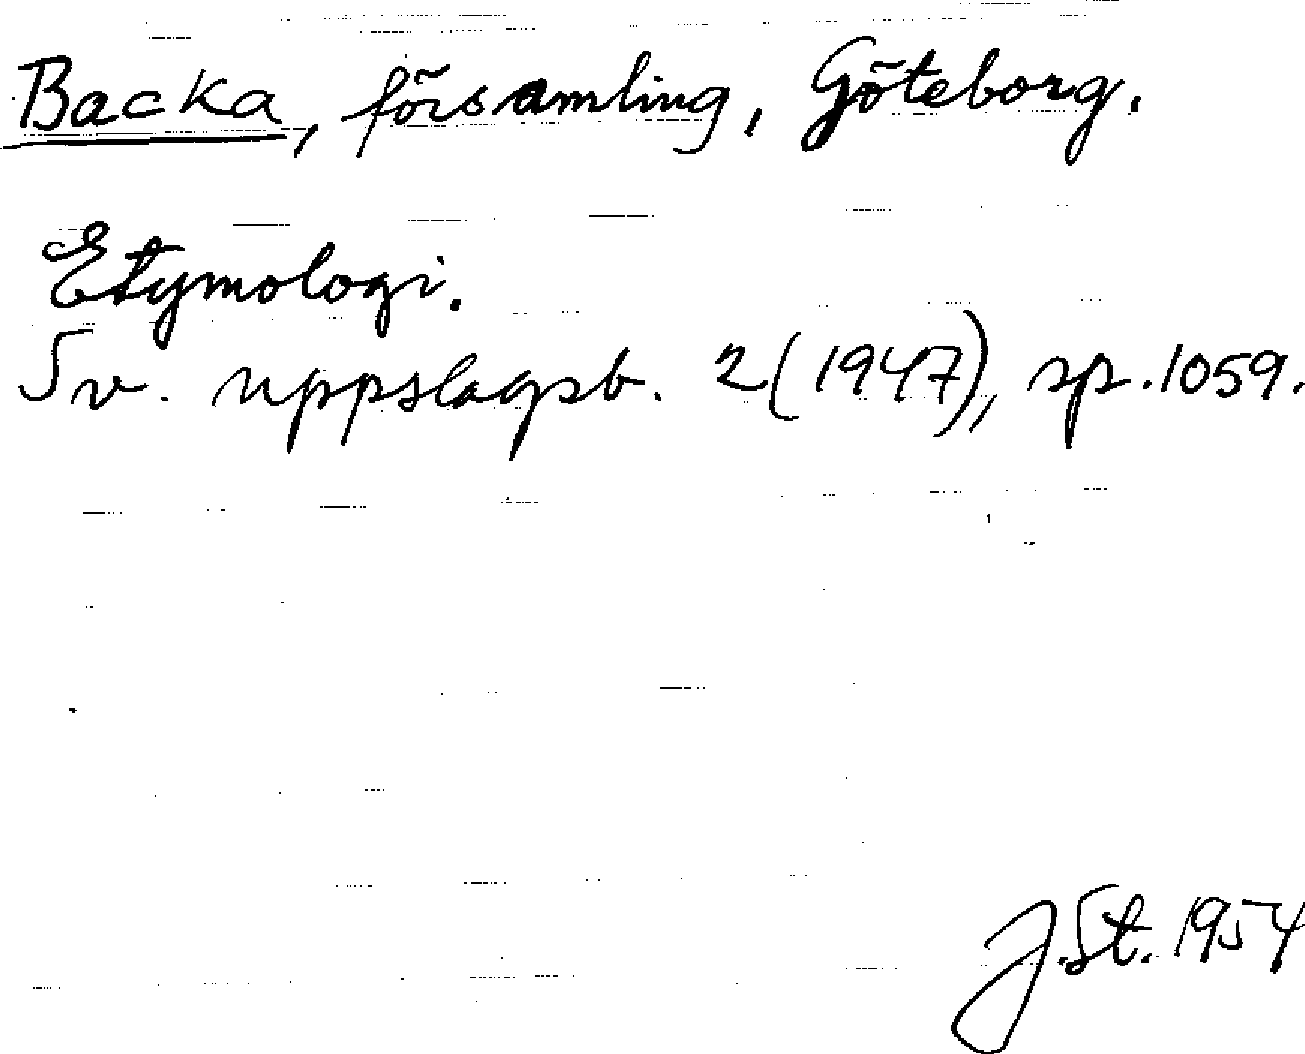 Backa, församling, Göteborg.
Etymologi.
Sv. uppslagsb. 2(1947), sp. 1059.
J.St. 1954